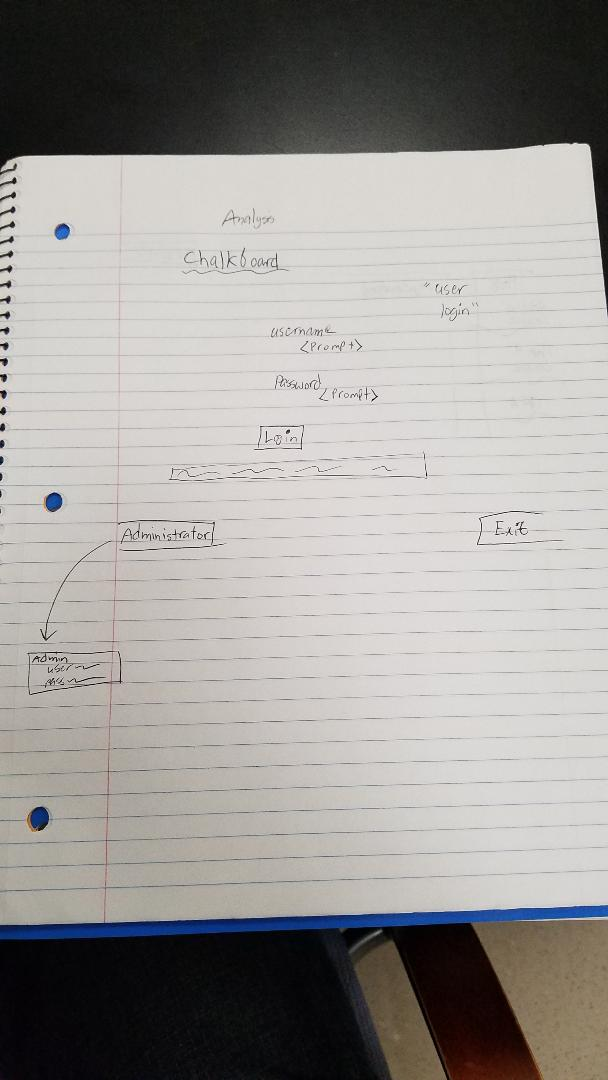 Analysis
Chalkboard
"user
login"
username
<Prompt>
Password
<Prompt>
Login
Administrator
Exit
Admin
user
pass